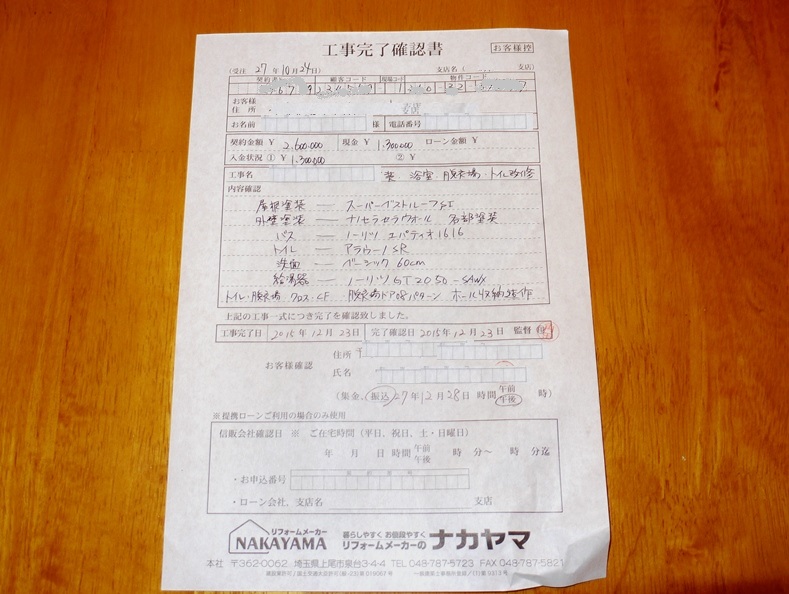 工事完了確認書
お客様控
(受注 27年10月24日) 支店名( 支店)
契約書 顧客コード 現場コード 物件コード
お客様
住所
お名前 様 電話番号
契約金額 ¥ 2,600,000 現金 ¥ 1,300,000 ローン金額 ¥
入金状況 ① ¥ 1,300,000 ② ¥
工事名 装、浴室・脱衣場・トイレ改修
内容確認
屋根塗装 — スーパーベストルーフSI
外壁塗装 — ナノセラセラウォール 各部塗装
バス — ノーリツ ユパティオ1616
トイレ — アラウーノSR
洗面 — ベーシック 60cm
給湯器 — ノーリツ GT2050-SAWX
トイレ・脱衣場 クロス・CF 脱衣場ドア08パターン ホール収納造作
上記の工事一式につき完了を確認致しました。
工事完了日 2015年12月23日 完了確認日 2015年12月23日 監督 印
住所 〒
お客様確認
氏名
(集金、振込) 27年12月28日 時間 午前 午後 時)
※提携ローンご利用の場合のみ使用
信販会社確認日 ※ ご在宅時間(平日、祝日、土・日曜日)
年 月 日 時間 午前 午後 時 分〜 時 分迄
・お申込番号
・ローン会社、支店名 支店
リフォームメーカー NAKAYAMA
暮らしやすく お値段やすく
リフォームメーカーの ナカヤマ
本社 〒362-0062 埼玉県上尾市泉台3-4-4 TEL 048-787-5723 FAX 048-787-5821